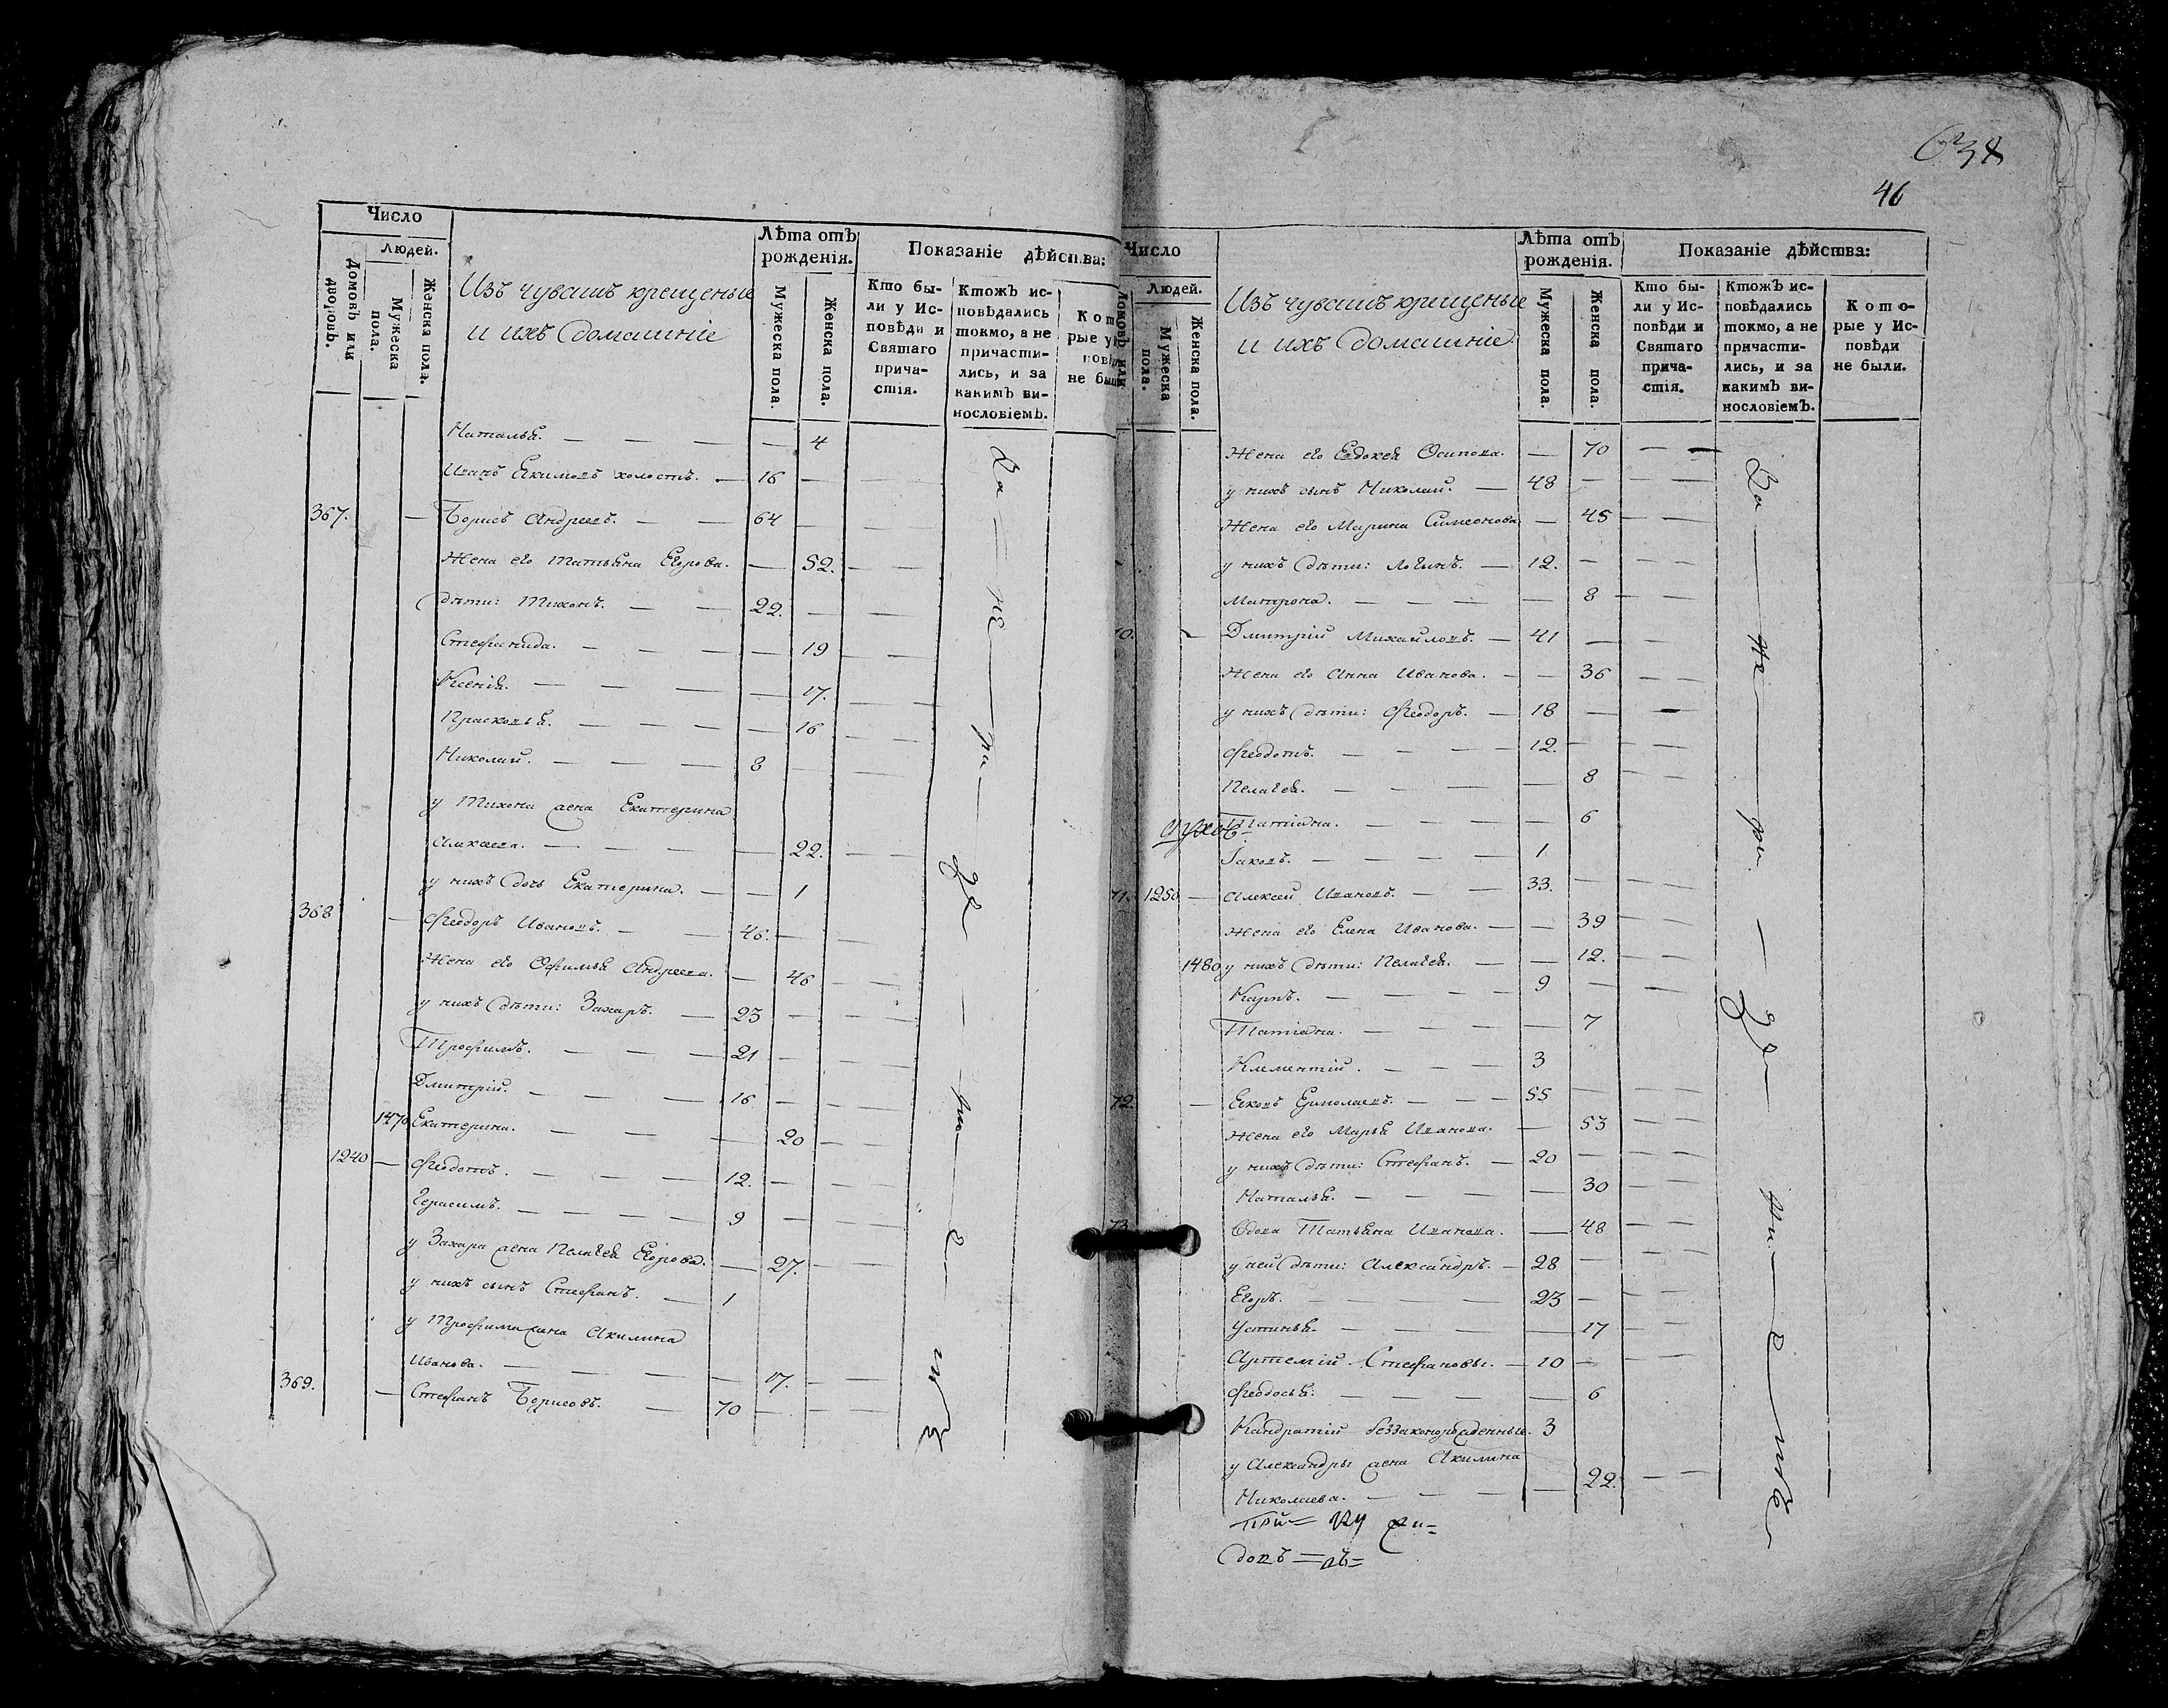 Число
Людей.
Домовъ или дворовъ.
Мужеска пола.
Женска пола.
Изъ чувашъ крещеные
и ихъ домашніе
Лѣта отъ рожденія.
Мужеска пола.
Женска пола.
Показаніе дѣйства:
Кто были у Исповѣди и Святаго причастія.
Ктожъ исповѣдались токмо, а не причастились, и за какимъ винословіемъ.
Кот
рые у
повѣ
не был
Наталья. — — — — 4
Иванъ Екимовъ холостъ. — 16 —
367. — Борисъ Андреевъ. — — 64 —
Жена его Татьяна Егорова. — 52.
дѣти: Тихонъ. — — 22. —
Степанида. — — — — 19
Ксенія. — — — — 17.
Прасковья. — — — — 16
Николай. — — — 8
у Тихона жена Екатерина
Алексѣева. — — — — 22.
у нихъ дочь Екатерина. — — 1
368 — Феодоръ Ивановъ. — — 46. —
Жена его Офимья Андреева. — 46
у нихъ дѣти: Захаръ. — 23 —
Трофимъ. — — — 21 —
Дмитрій. — — — 16 —
1470 Екатерина. — — — — 20
1240 — Феодотъ. — — — 12. —
Герасимъ. — — — 9 —
у Захара жена Пелагея Егорова. — 27.
у нихъ сынъ Стефанъ. — 1
у Трофима жена Акилина
Иванова. — — — — 17.
369. — Стефанъ Борисовъ. — 70 —
46
Число
Людей.
Домовъ или
Мужеска пола.
Женска пола.
Изъ чувашъ крещеные
и ихъ домашніе
Лѣта отъ рожденія.
Мужеска пола.
Женска пола.
Показаніе дѣйства:
Кто были у Исповѣди и Святаго причастія.
Ктожъ исповѣдались токмо, а не причастились, и за какимъ винословіемъ.
Которые у Исповѣди не были.
Жена его Евдокея Осипова. — 70
у нихъ сынъ Николай. — 48 —
Жена его Марина Симеонова — 45
у нихъ дѣти: Логинъ. — 12. —
Матрона. — — — — 8
70. — Дмитрій Михайловъ. — 41 —
Жена его Анна Иванова. — — 36
у нихъ дѣти: Феодоръ. — 18 —
Феодотъ. — — — 12. —
Пелагея. — — — — 8
Татіана. — — — — 6
Іаковъ. — — — — 1
71. 1250 — Алексей Ивановъ. — — 33. —
Жена его Елена Иванова. — — 39
1480 у нихъ дѣти: Пелагея. — — 12.
Карпъ. — — — — 9 —
Татіана. — — — — 7
Клементій. — — — 3
72. — Яковъ Ермолаевъ. — — — 55 —
Жена его Марья Иванова. — 53
у нихъ дѣти: Стефанъ. — 20 —
Наталья. — — — — 30
73 Вдова Татьяна Иванова. — 48
у ней дѣти: Александръ. — 28 —
Егоръ. — — — 23 —
Устинья — — — — 17
Артемій Стефановы. — 10 —
Феодосья: — — — — 6
Кандратій беззаконорожденные. 3
у Александры жена Акилина
Николаева. — — — — 22.